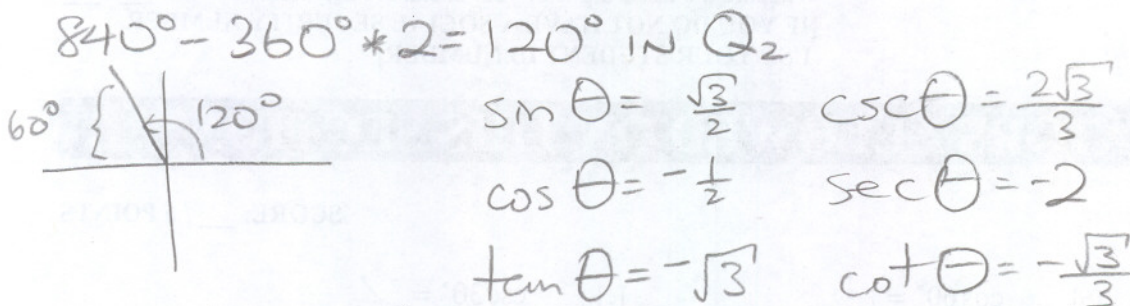 840° - 360° * 2 = 120° IN Q₂
60°
120°
sin θ = √3/2 csc θ = 2√3/3
cos θ = -1/2 sec θ = -2
tan θ = -√3 cot θ = -√3/3
SCORE: ___ / POINTS